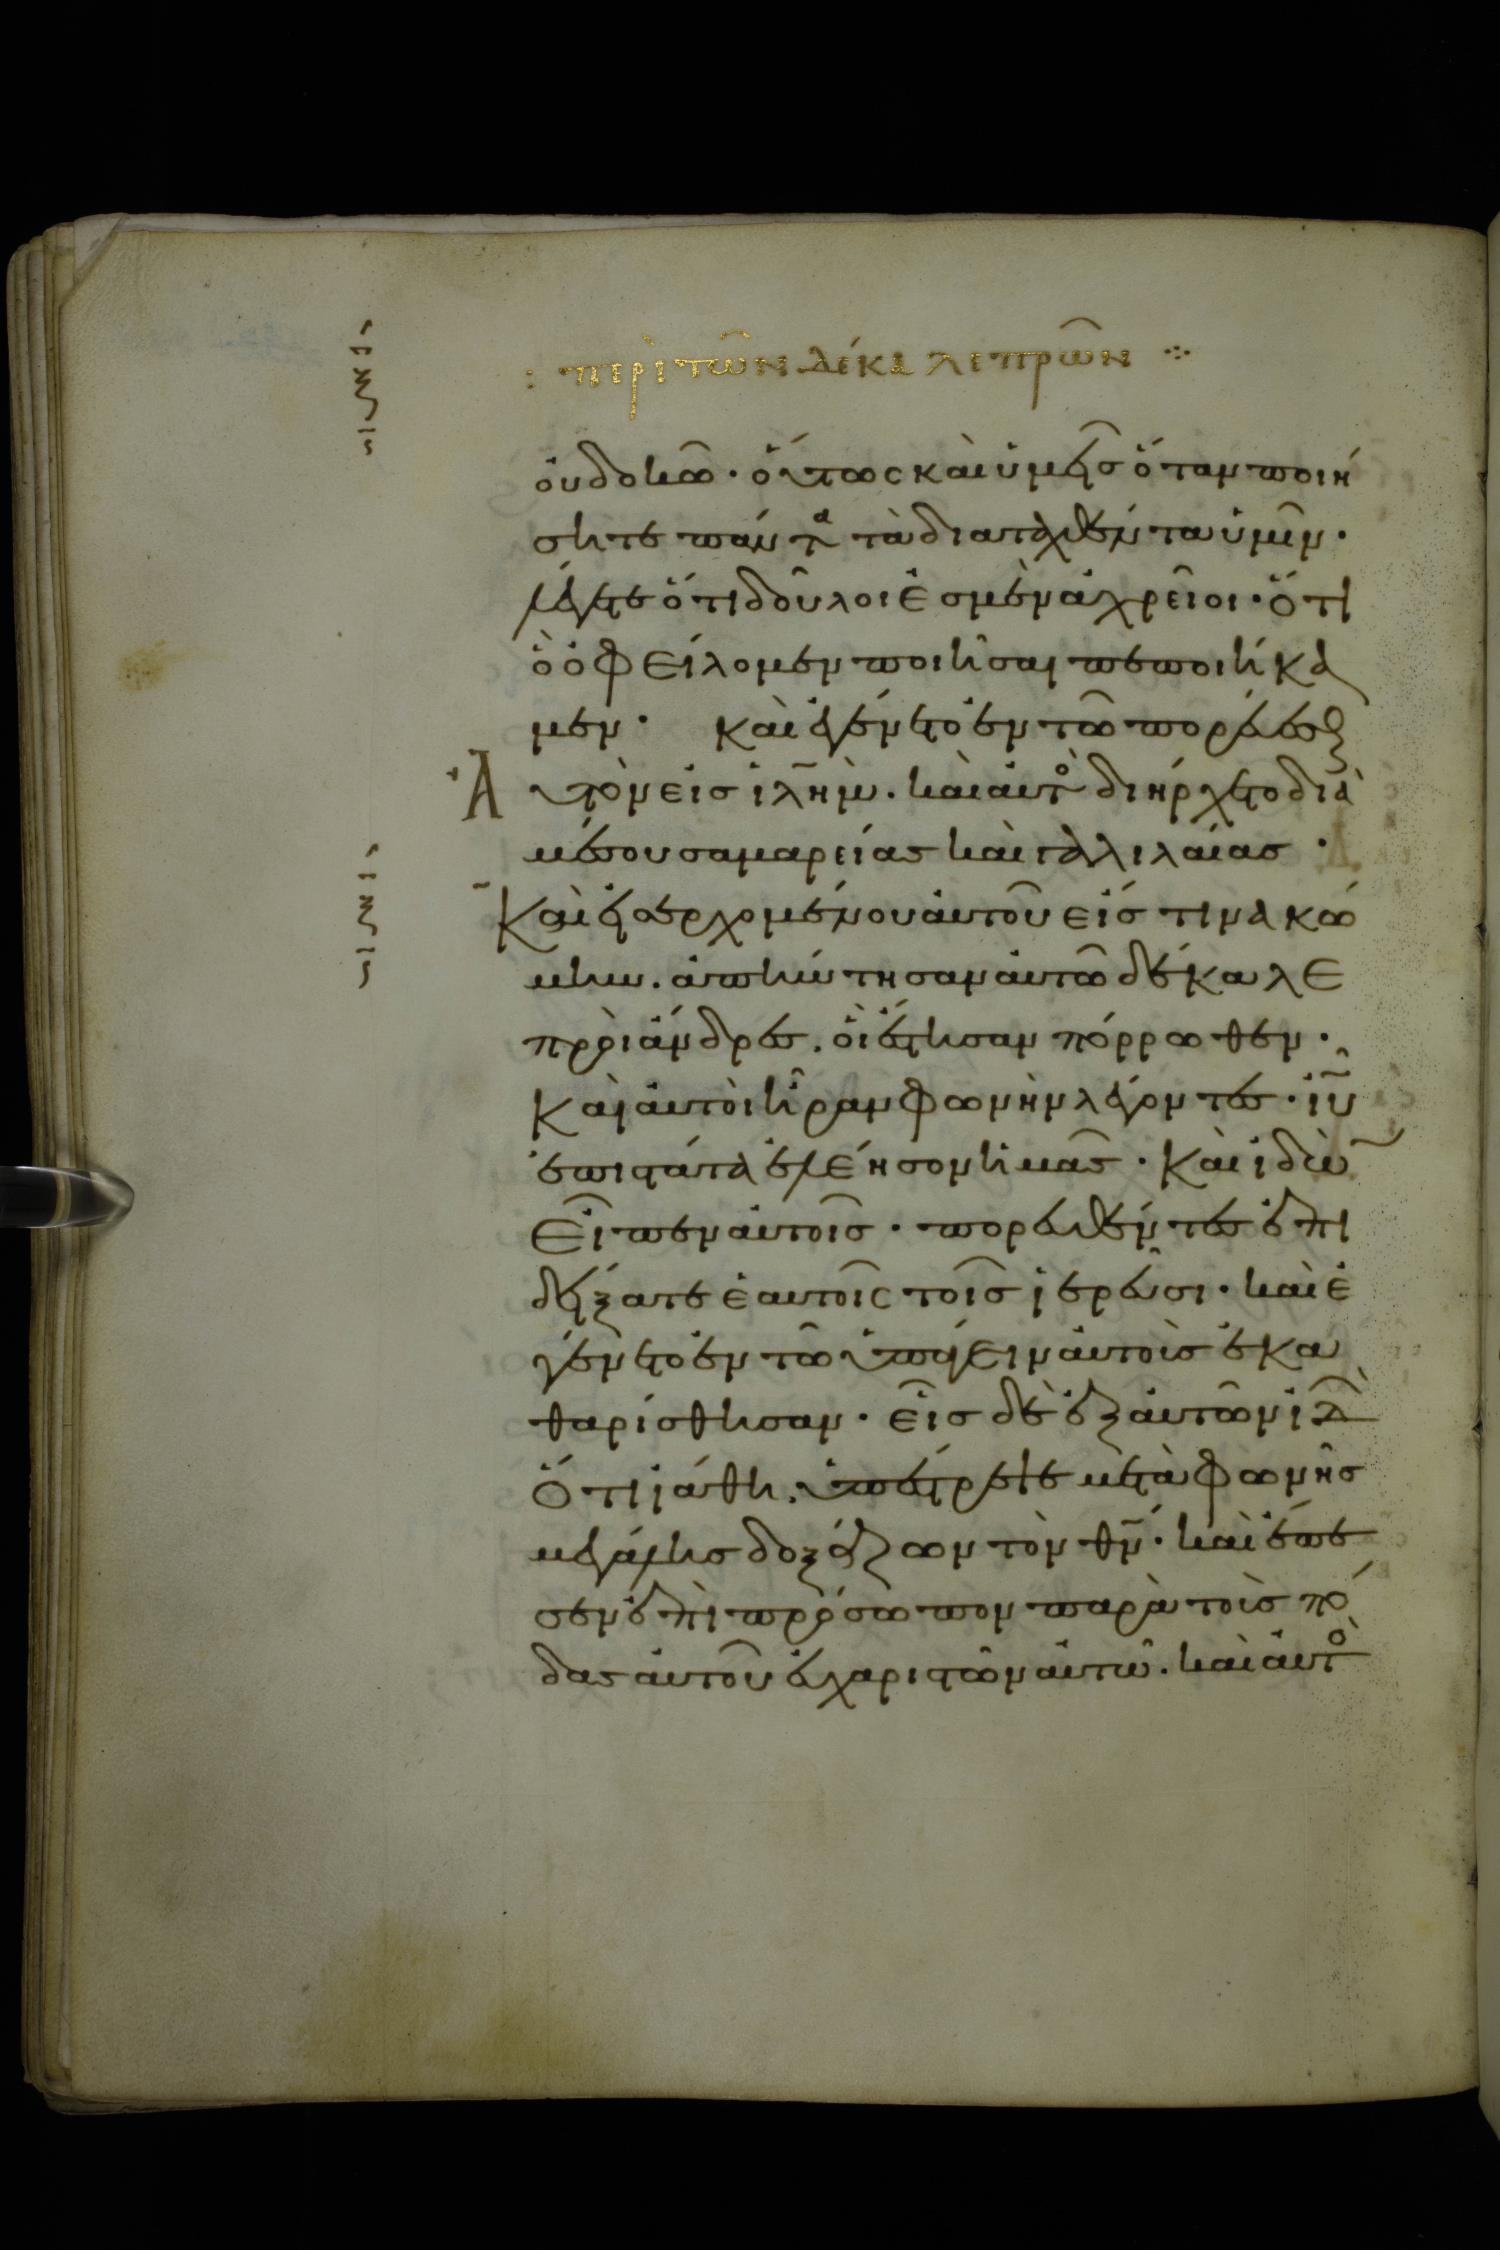 : περὶ τῶν δέκα λεπρῶν ⁘
οὐ δοκῶ · οὕτως καὶ ὑμεῖς ὅταν ποιή
σητε πάντα τὰ διαταχθέντα ὑμῖν ·
λέγετε ὅτι δοῦλοι ἐσμὲν ἀχρεῖοι · ὅτι
ὃ ὀφείλομεν ποιῆσαι πεποιήκα
μεν · καὶ ἐγένετο ἐν τῶ πορεύεσθ
Ἀ υτὸν εἰς ἱλῆμ̀ . καὶ αὐτὸ διήρχετο διὰ
μέσου σαμαρείας καὶ γαλιλαίας ·
Καὶ εἰσερχομένου αὐτοῦ εἴς τινα κώ
μην . ἀπήντησαν αὐτῶ δέκα λε
προὶ ἄνδρες . οἳ ἔστησαν πόρρωθεν ·
Καὶ αὐτοὶ ἦραν φωνὴν λέγοντες · ἰῦ
ἐπιστάτα ἐλέησον ἡμᾶς · Καὶ ἰδὼ
Εἶπεν αὐτοῖς · πορευθέντες ἐπι
δείξατε ἑαυτοῖς τοῖς ἱερεῦσι · καὶ ἐ
γένετο ἐν τῶ ὑπάγειν αὐτοὺς ἐκα
θαρίσθησαν · εἷς δὲ ἐξ αὐτῶν ἰδὼ
Ὅτι ἰάθη . ὑπέστρεψε μετὰ φωνῆς
μεγάλης δοξάζων τὸν θν̄ · καὶ ἔπε
σεν ἐπὶ πρόσωπον παρὰ τοὺς πό
δας αὐτοῦ εὐχαριστῶν αὐτῶ . καὶ αὐτὸ